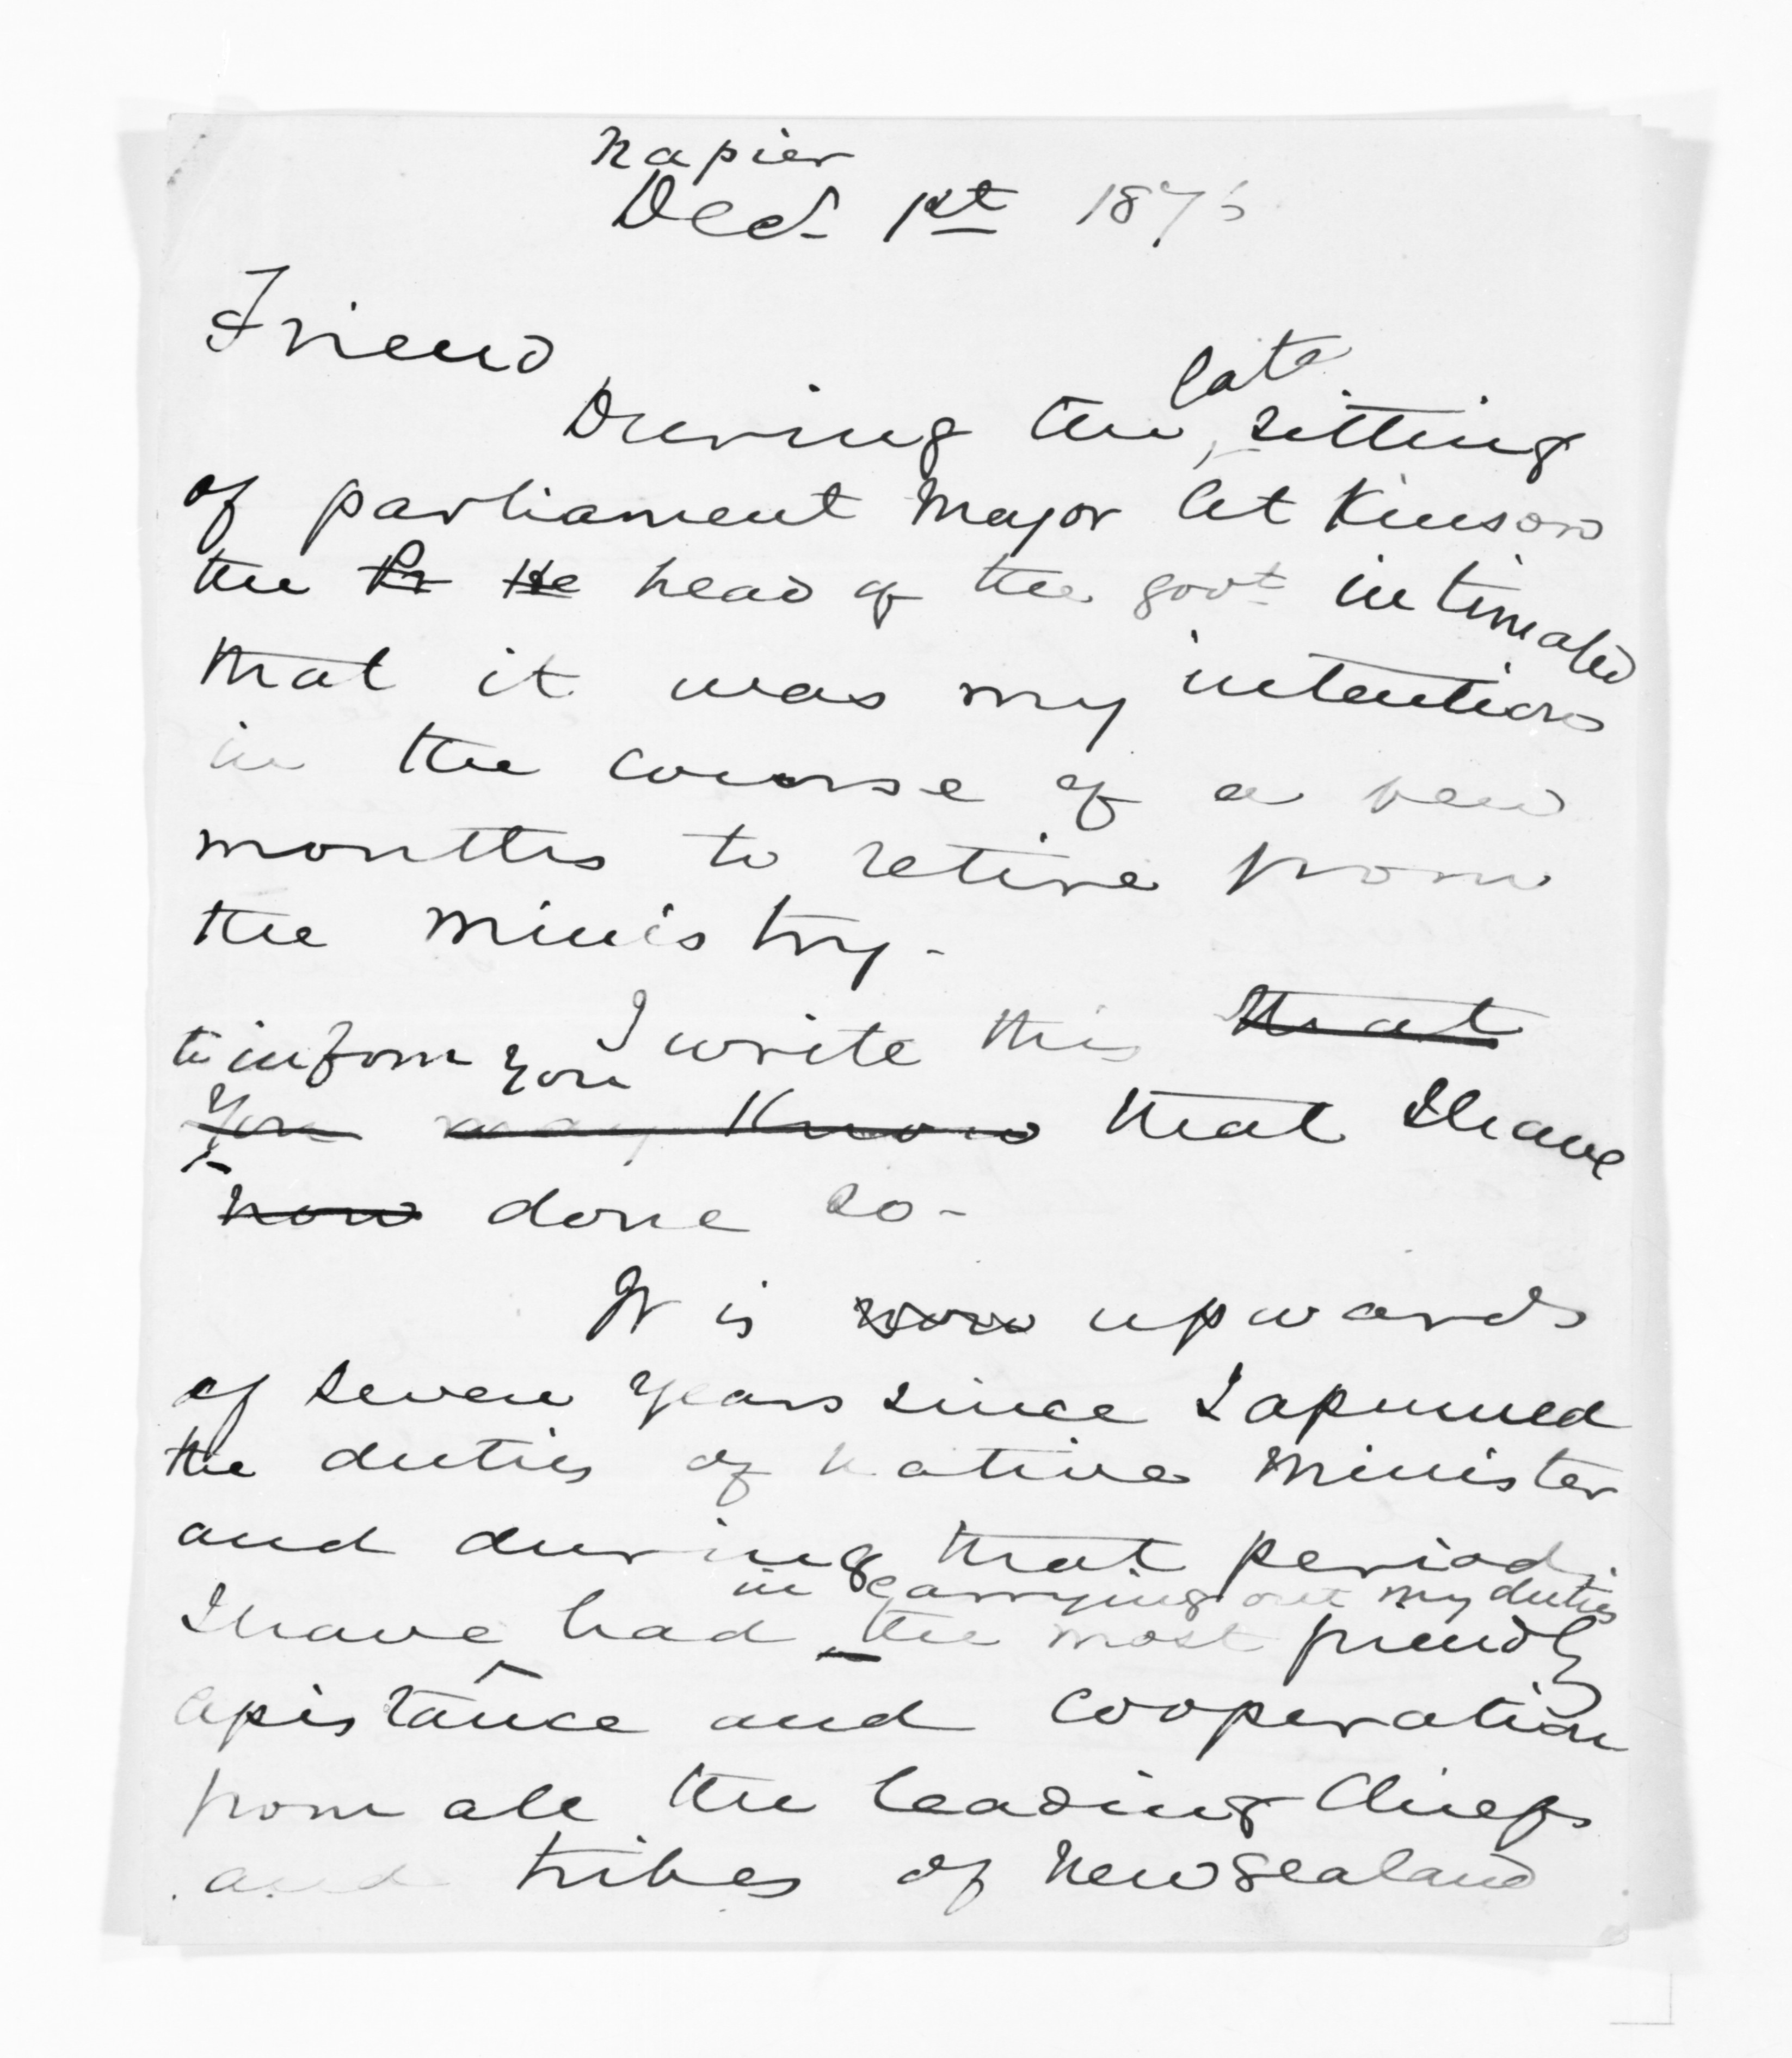 Napier
Decr 1st 1876
Friend
During the late sitting
of parliament Major Atkinson
the Pr He head of the govt intimated
that it was my intention
in the course of a few
months to retire from
the ministry -
I write this that
to inform you
You may know that I have
now done so -
It is now upwards
of seven years since I assumed
the duties of native Minister
and during that period
in carrying out my duties
I have had the most friendly
assistance and cooperation
from all the leading Chiefs
and tribes of New Zealand